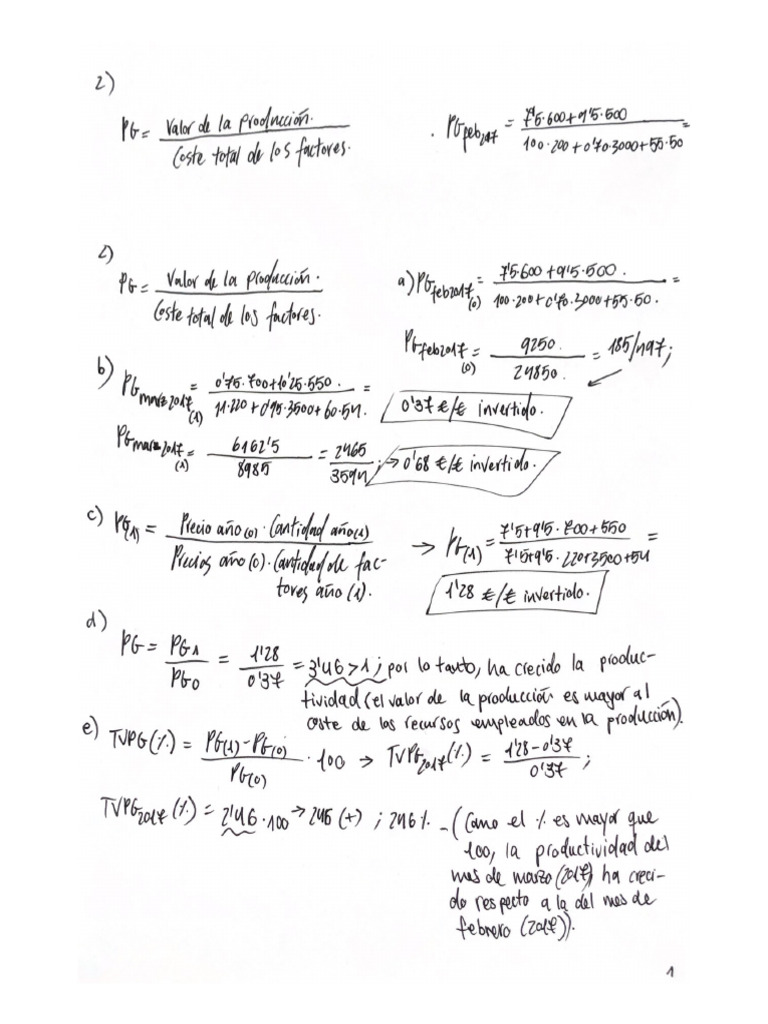 2)
PG = Valor de la producción. / Coste total de los factores.
. PG feb2017 = 7'5·600+9'5·500 / 100·200+0'70·3000+55·50 =
2)
PG = Valor de la producción. / Coste total de los factores.
a) PG feb2017 (0) = 7'5·600+9'5·500. / 100·200+0'70·3000+55·50. =
PG feb2017 (0) = 9250. / 24850. = 185/497;
b) PG marz2017 (1) = 0'75·700+10'25·550. / 11·220+0'95·3500+60·54. =
0'37 €/€ invertido.
PG marz2017 (1) = 6162'5 / 8985 = 2465 / 3594 ; → 0'68 €/€ invertido.
c) PG(1) = Precio año(0)·Cantidad año(1) / Precios año (0)·Cantidad de fac-
tores año (1).
→ PG(1) = 7'5+9'5·700+550 / 7'5+9'5·220+3500+54 =
1'28 €/€ invertido.
d) PG = PG1 / PG0 = 1'28 / 0'37 = 3'46>1; por lo tanto, ha crecido la produc-
tividad (el valor de la producción es mayor al
coste de los recursos empleados en la producción).
e) TVPG(%) = PG(1)-PG(0) / PG(0) · 100 → TVPG2017(%) = 1'28-0'37 / 0'37 ;
TVPG2017(%) = 2'46·100 → 246 (+) ; 246% - (Como el % es mayor que
100, la productividad del
mes de marzo (2017) ha creci-
do respecto a la del mes de
febrero (2017)).
1